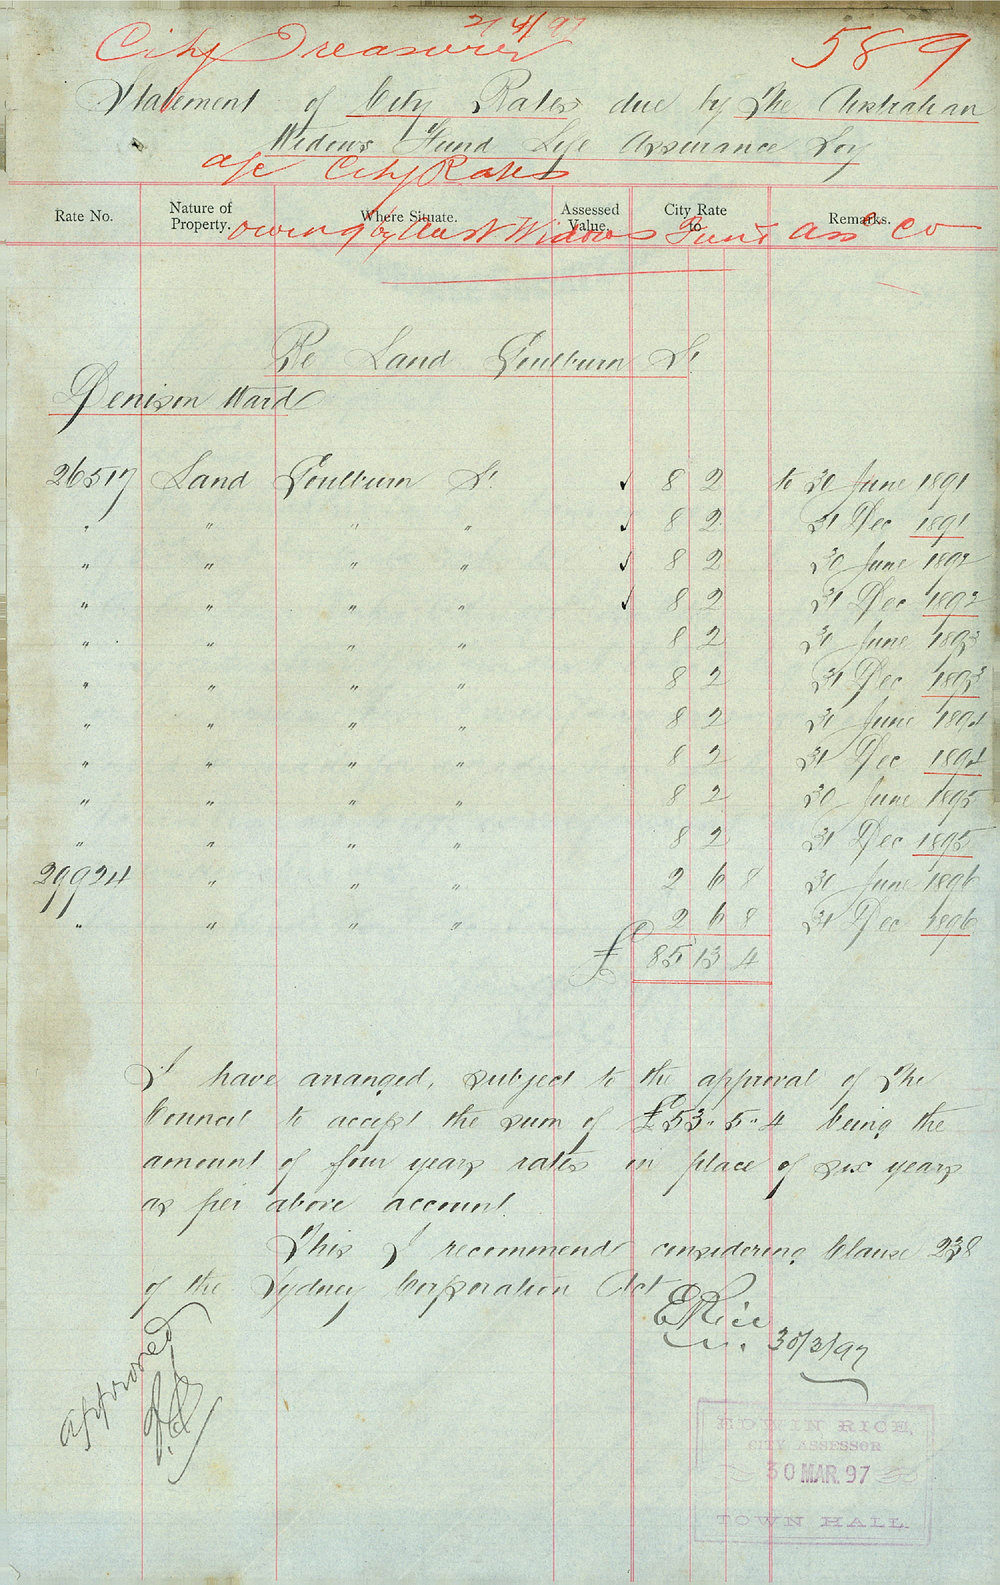 21/4/97
City Treasurer 589
Statement of City Rates due by The Australian
Widows Fund Life Assurance Socy
a/c City Rates
Rate No. Nature of Property. Where Situate. Assessed Value. City Rate to Remarks.
owing by Aust Widows Fund Assce Co
Re Land Goulburn St.
Denison Ward
26517 Land Goulburn St. ✓ 8 2 to 30 June 1891
" " " " ✓ 8 2 31 Dec 1891
" " " " ✓ 8 2 30 June 1892
" " " " ✓ 8 2 31 Dec 1892
" " " " 8 2 30 June 1893
" " " " 8 2 31 Dec 1893
" " " " 8 2 30 June 1894
" " " " 8 2 31 Dec 1894
" " " " 8 2 30 June 1895
" " " " 8 2 31 Dec 1895
29924 " " " 2 6 8 30 June 1896
" " " " 2 6 8 31 Dec 1896
£ 85 13 4
I have arranged, subject to the approval of The
Council to accept the sum of £53-5-4 being the
amount of four years rates in place of six years
as per above account.
This I recommend considering Clause 238
of the Sydney Corporation Act
ERice
30/3/97
approved
EDWIN RICE,
CITY ASSESSOR
30 MAR. 97
TOWN HALL.